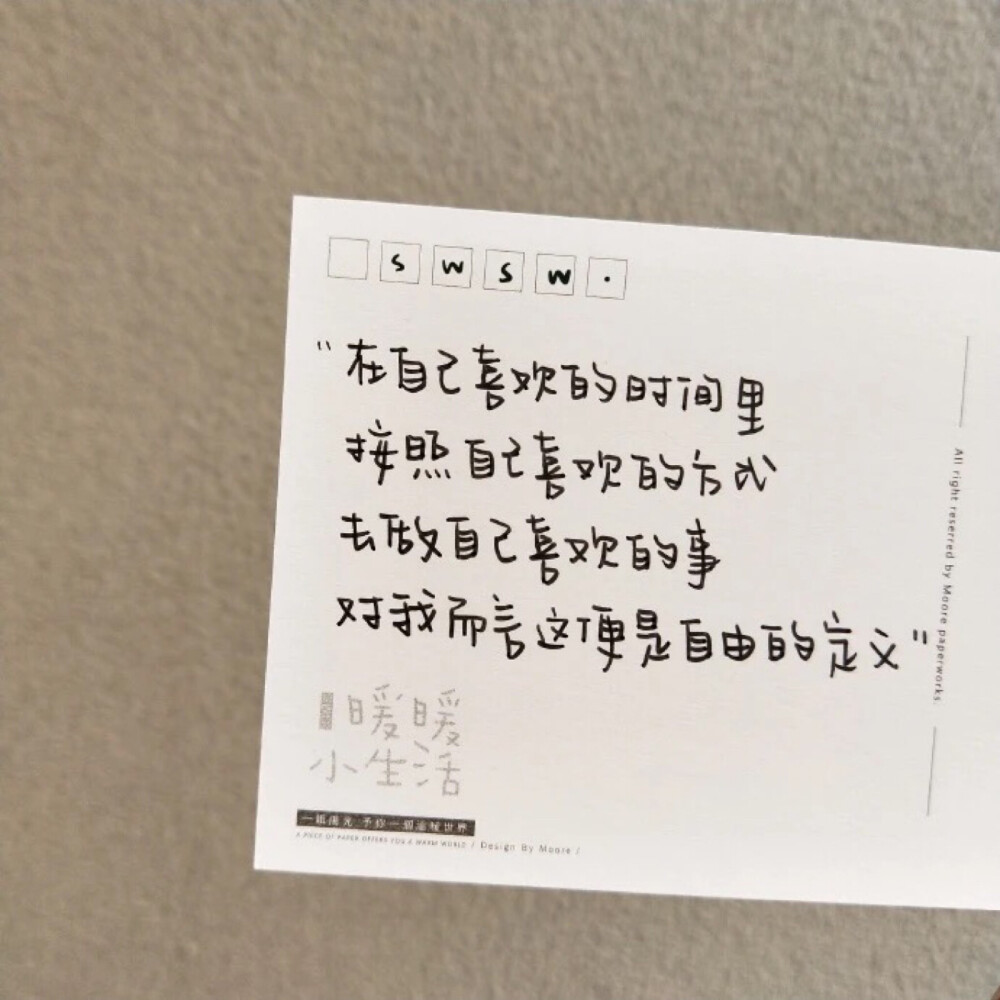 S W S W .
"在自己喜欢的时间里
按照自己喜欢的方式
去做自己喜欢的事
对我而言这便是自由的定义"
暖暖
小生活
一紙陽光 予你一個溫暖世界
A PIECE OF PAPER OFFERS YOU A WARM WORLD / Design By Moore /
All right reserred by Moore paperworks.